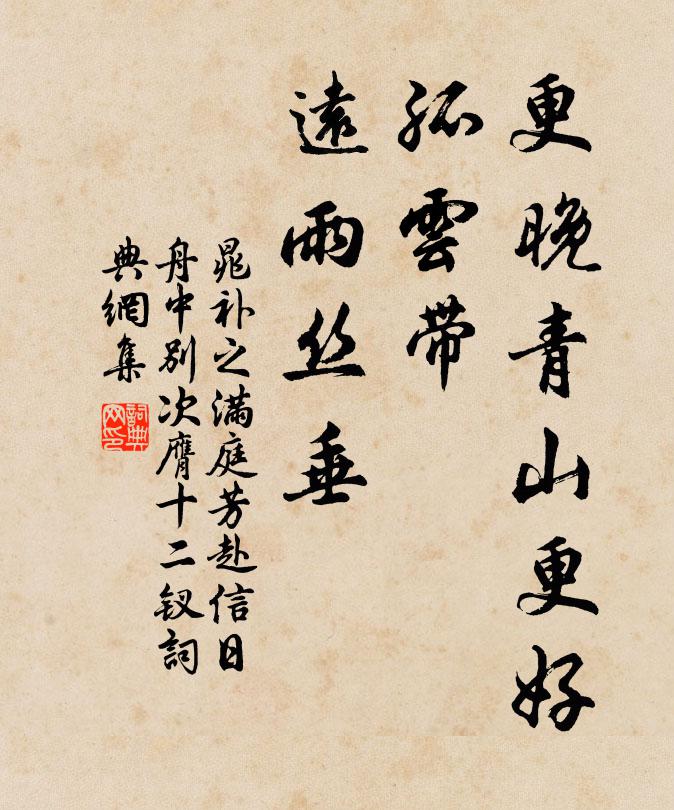 更晚青山更好
孤雲帶
遠雨丝垂
晁补之满庭芳赴信日
舟中别次膺十二钗詞
典網集
詞典网印